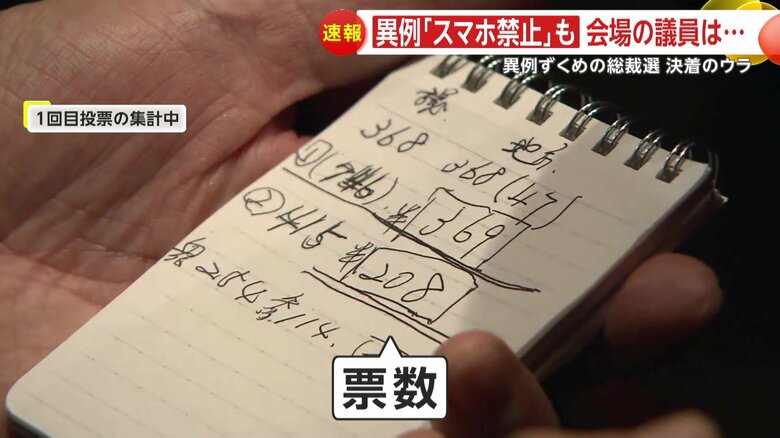 速報 異例「スマホ禁止」も 会場の議員は…
異例ずくめの総裁選 決着のウラ
1回目投票の集計中
地方
368 368(47)
① 369
② 208
284 114
票数